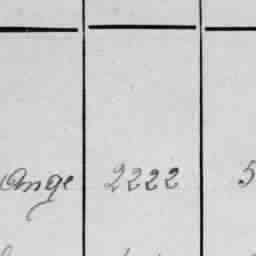 Ange 2222 5